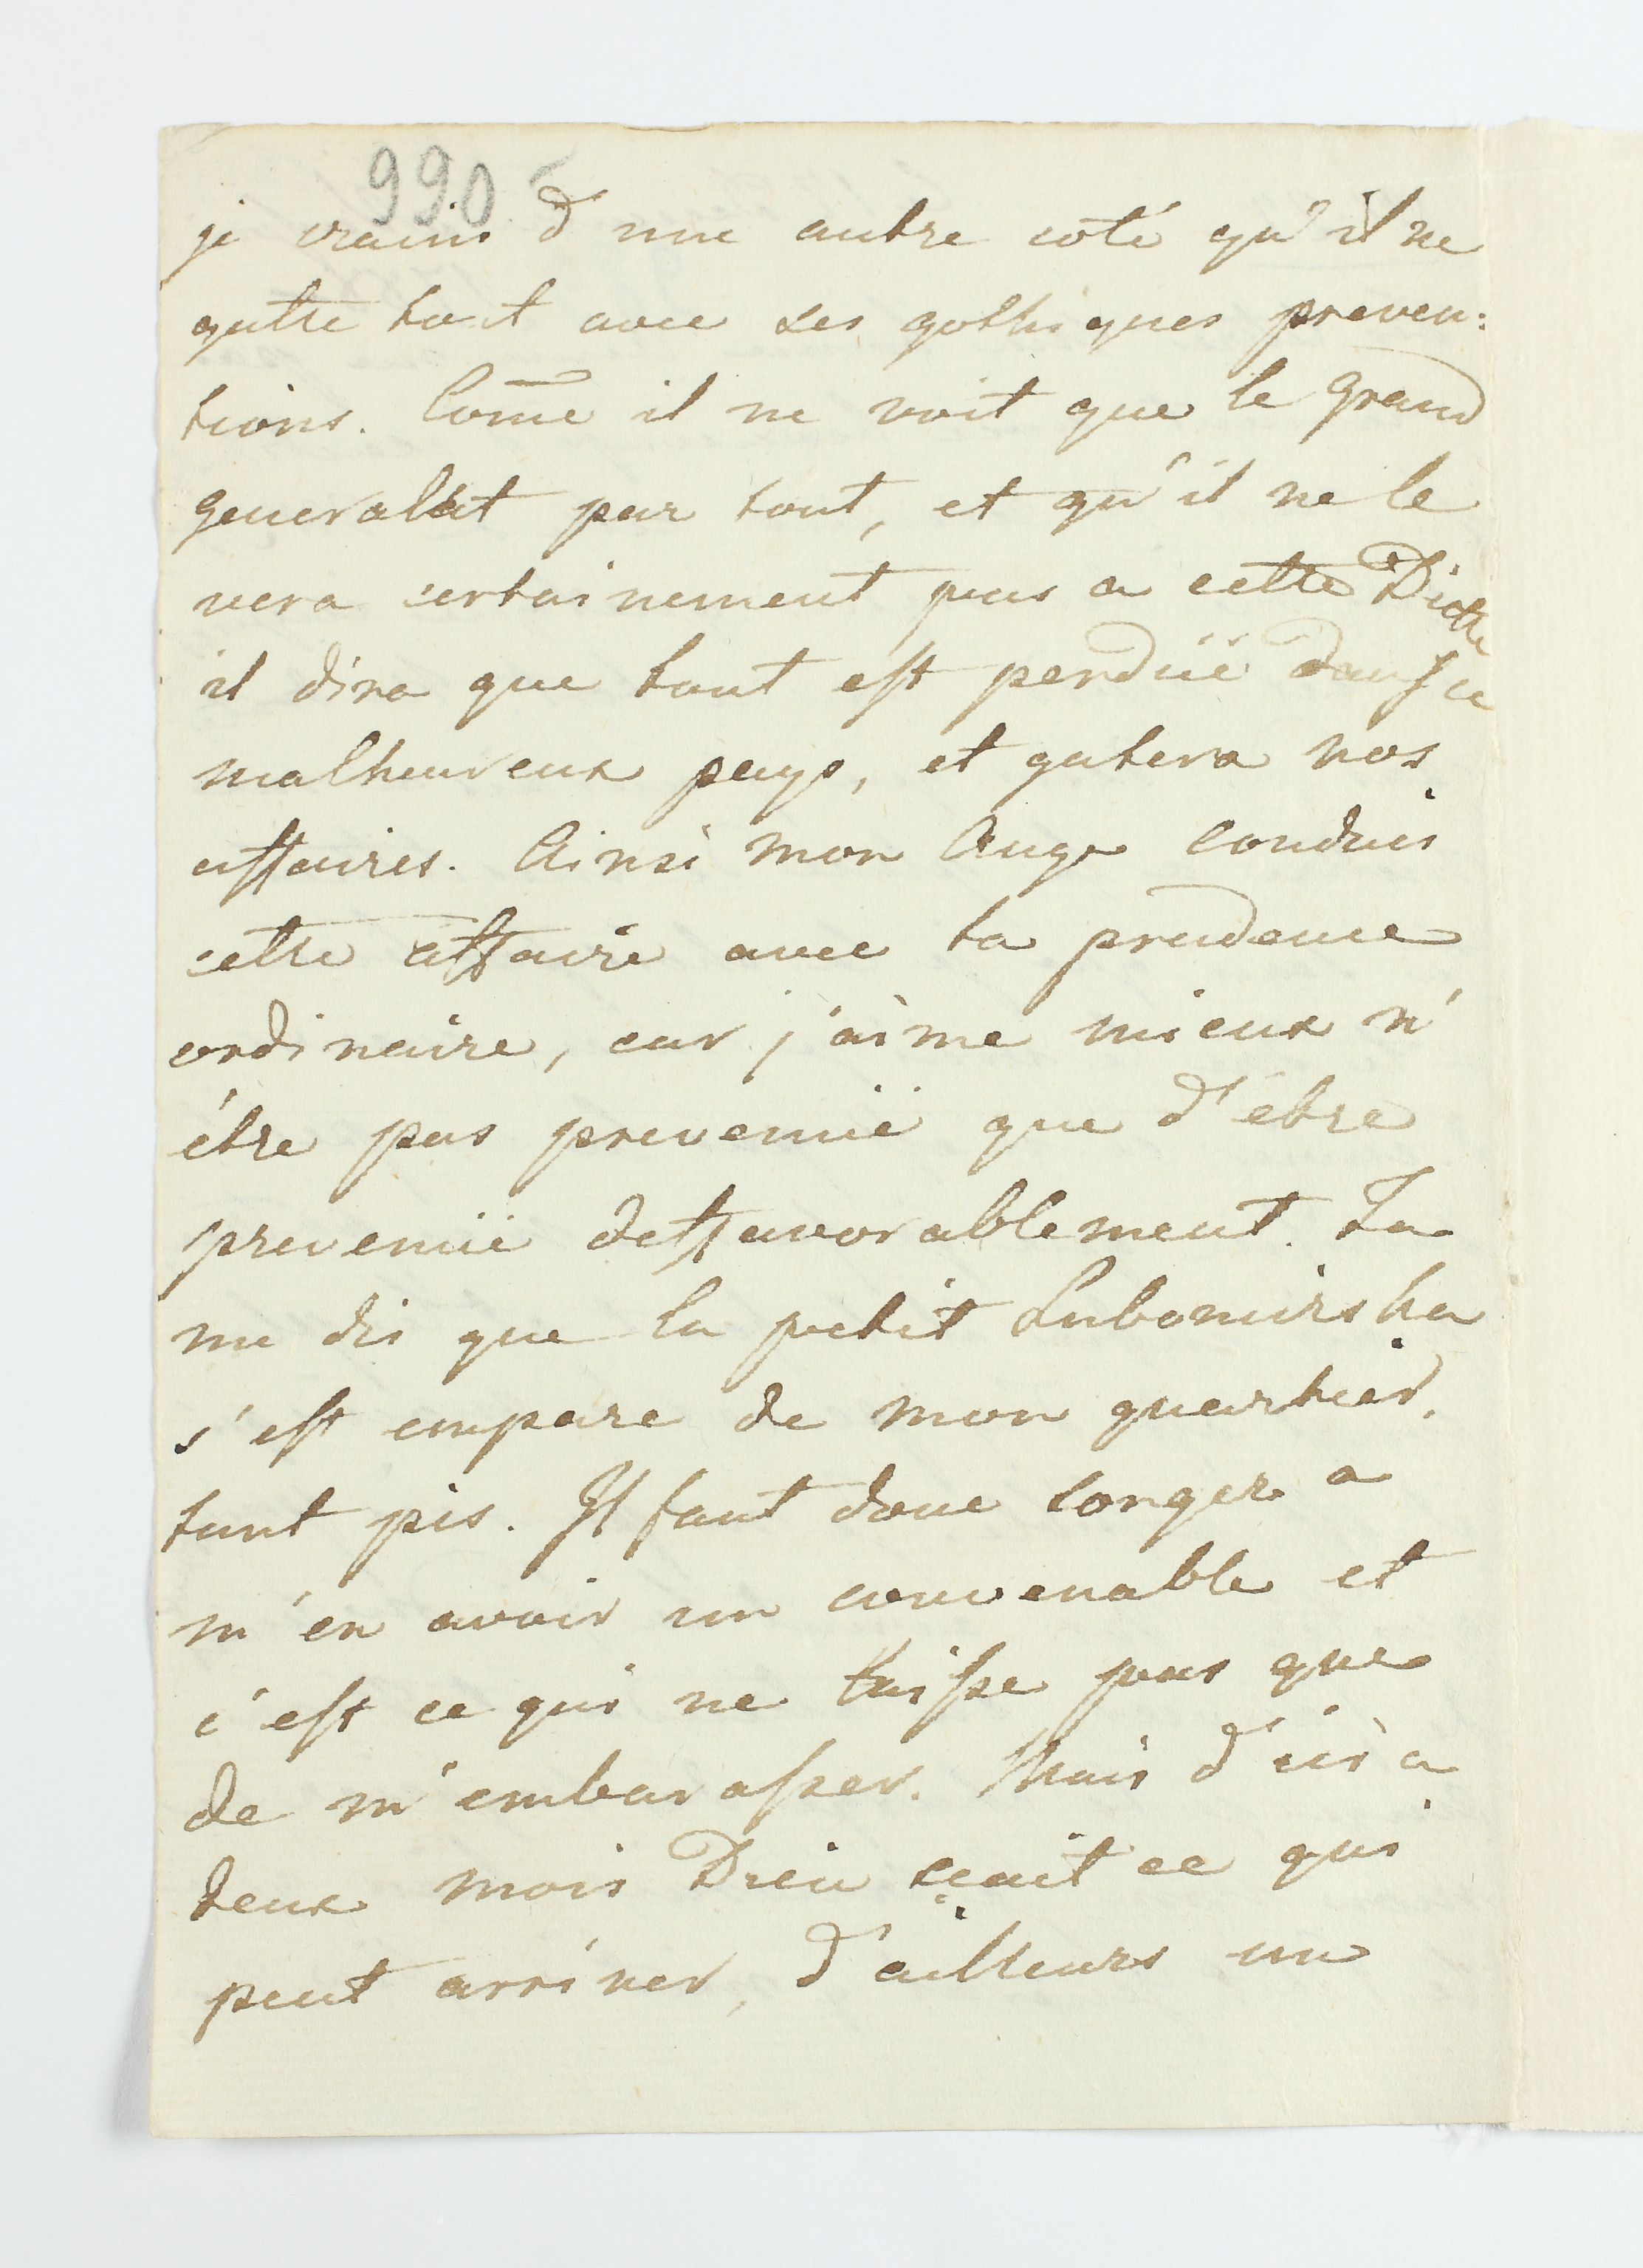 990
je crains d'une autre coté qu'il ne
gutte tout avec ses gothiques preven:
tions. Come il ne voit que le Grand
Generalat par tout, et qu'il ne le
vera certainement pas a cette Diette
il dira que tout est perduë dans ce
malheureux pays, et gatera nos
affaires. Ainsi mon Ange conduis
cette affaire avec ta prudence
ordinaire, car j'aime mieux n'
étre pas prevenuë que d'étre
prevenuë deffavorablement. Tu
me dis que la petit Lubomirska
s'est empare de mon quartier,
tant pis. Il faut donc songer a
m'en avoir un convenable et
c'est ce qui ne laisse pas que
de m'embarasser. Mais d'ici a
deux mois Dieu sçait ce qui
peut arriver, d'ailleurs un